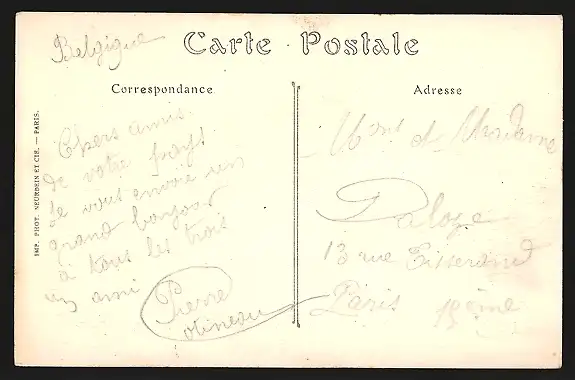 Belgique
Carte Postale
Correspondance
Adresse
IMP. PHOT. NEURDEIN ET CIE. — PARIS.
Chers amis.
de votre pays.
Je vous envoie un
grand bonjour
a tous les trois
un ami
Pierre
Mr et Madame
Daloze
13 rue Tisserand
Paris 15ème